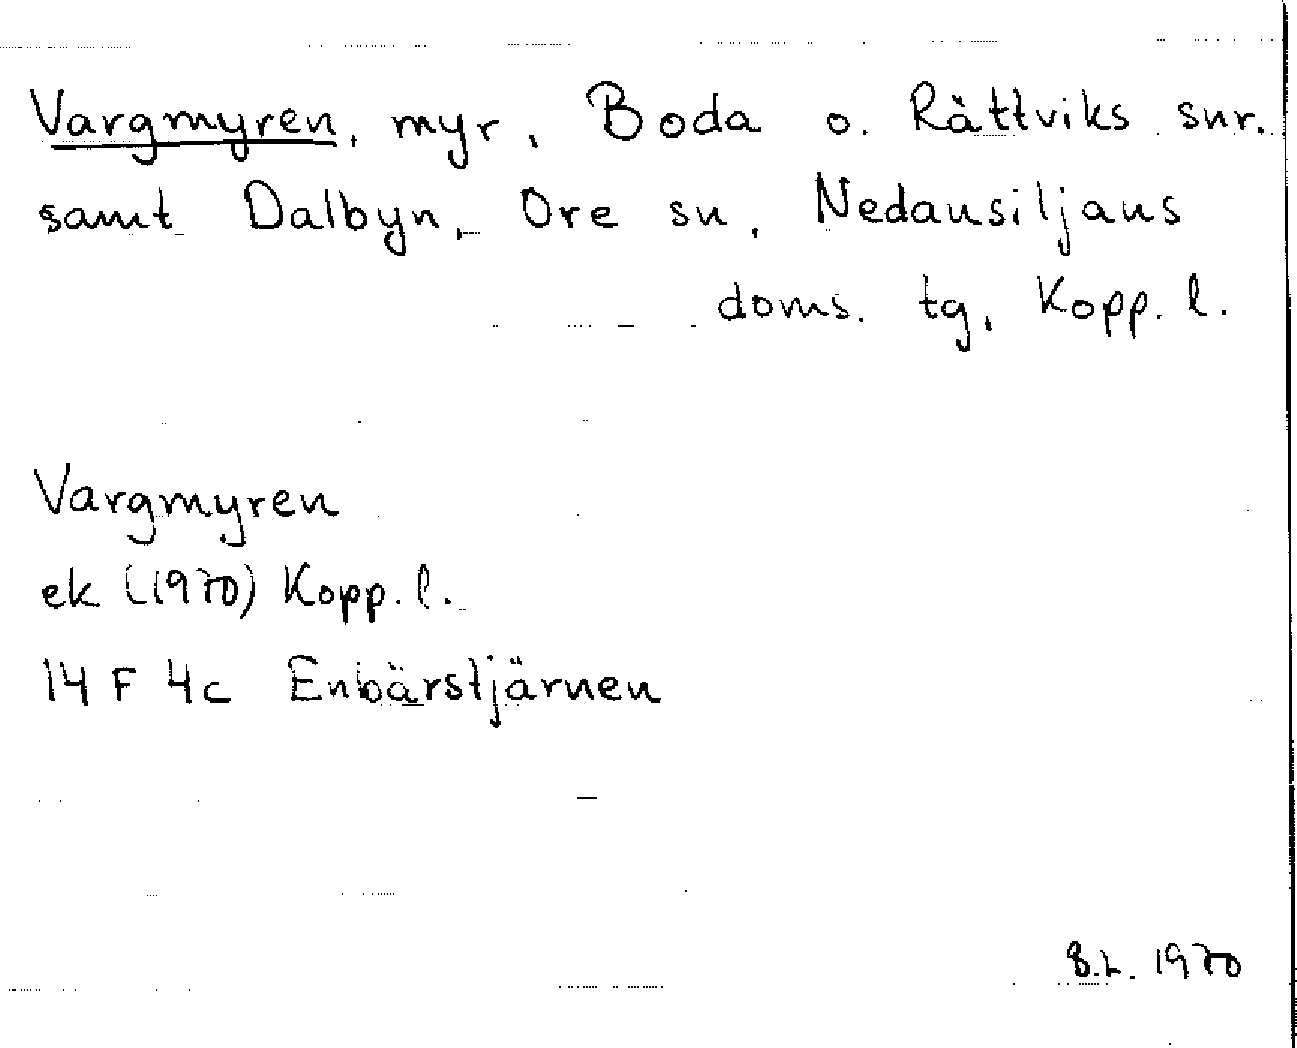 Vargmyren, myr, Boda o. Rättviks snr.
samt Dalbyn, Ore sn, Nedansiljans
doms. tg, Kopp. l.
Vargmyren
ek (1970) Kopp. l.
14 F 4c Enbärstjärnen
1970